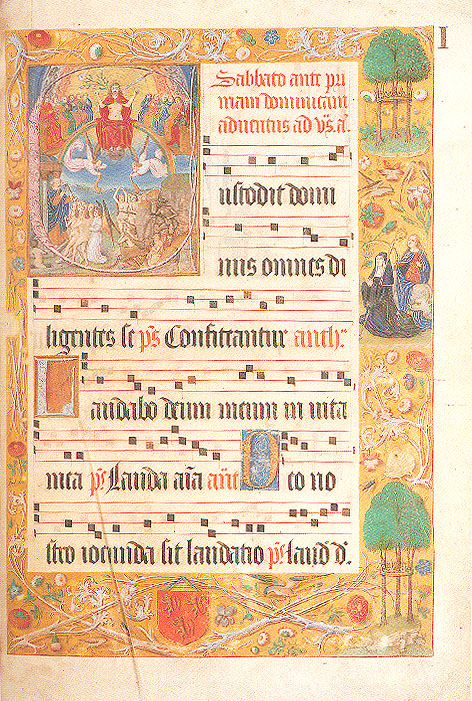 I
Sabbato ante pri
mam dominicam
aduentus ad v̄s. a.
Custodit domi
nus omnes di
ligentes se ps̄ Confiteantur anth.
Laudabo deum meum in uita
mea ps̄ Lauda aīa ant Deo no
stro iocunda sit laudatio ps̄ laud d.